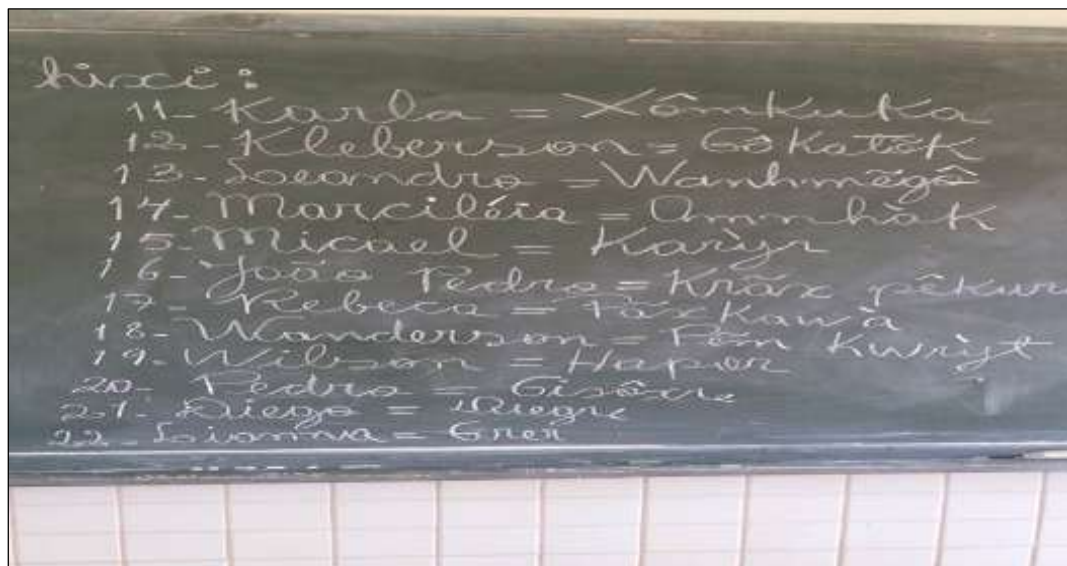 hixci:
11- Karla = Xômkuka
12- Kleberson = Gôkatêk
13- Leandro = Wanhmẽgô
14- Marciléia = Ommhàk
15- Micael = Karỳr
16- João Pedro = Krãx pêkur
17- Rebeca = Pãxkawà
18- Wanderson = Pẽm Kwrỳt
19- Wilson = Hapor
20- Pedro =
21- Diego =
22- = Grer